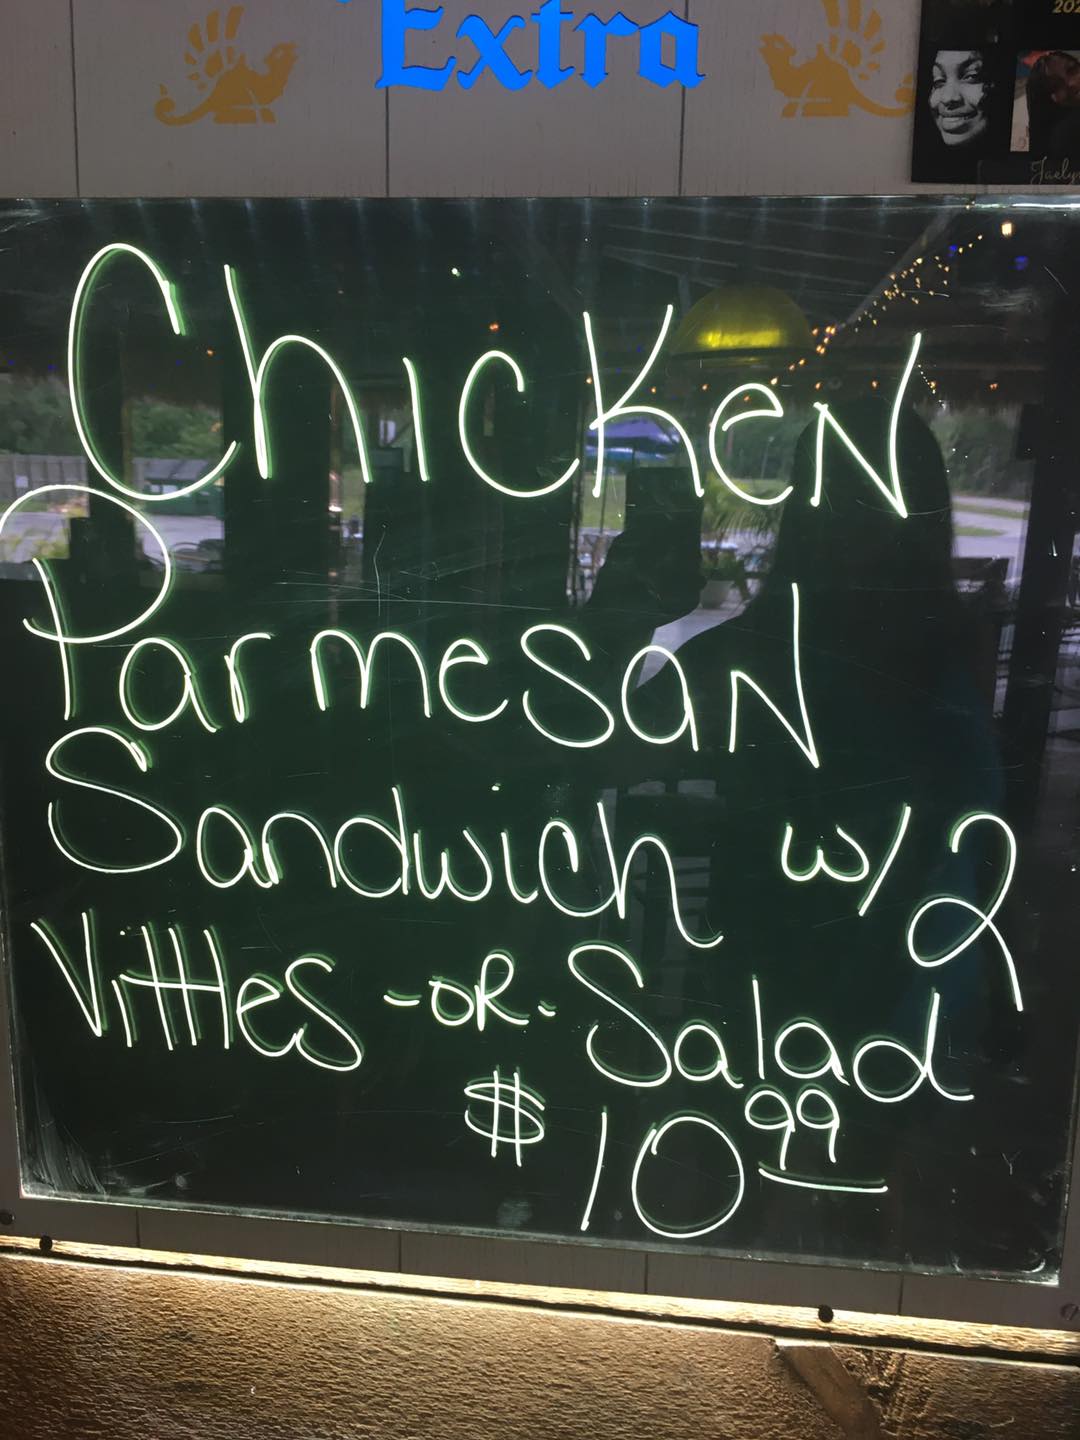 Extra
202
Jaelyn
Chicken
Parmesan
Sandwich w/ 2
Vittles -OR- Salad
$10.99